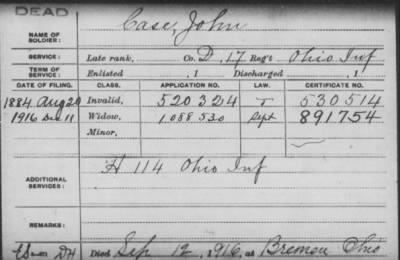 DEAD
NAME OF SOLDIER: Case, John
SERVICE: Late rank, Co. D, 17 Reg't Ohio Inf
TERM OF SERVICE: Enlisted , 1 Discharged , 1
DATE OF FILING. CLASS. APPLICATION NO. LAW. CERTIFICATE NO.
1884 Aug 20 Invalid, 520324 530514
1916 Dec 11 Widow, 1088530 Sept 891754
Minor,
ADDITIONAL SERVICES: H 114 Ohio Inf
REMARKS:
Died Sep 12, 1916, at Bremen Ohio